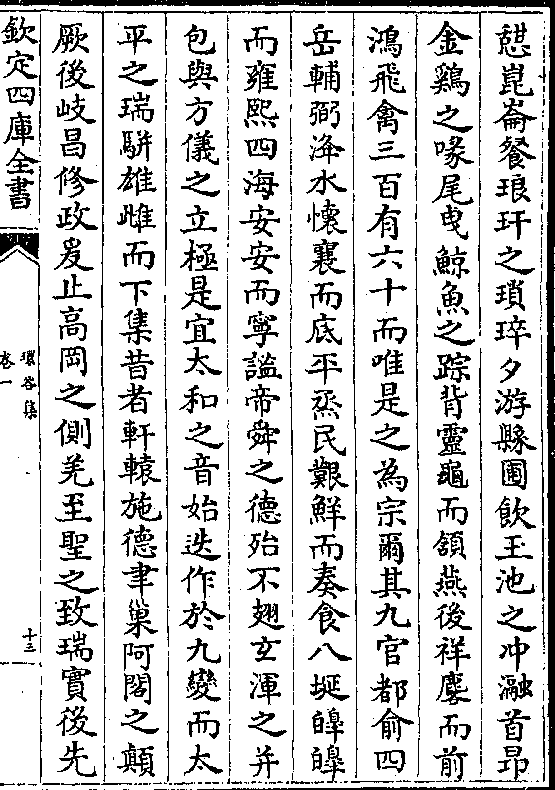 憇崑崙餐琅玕之瑣瑋夕游縣圃飲玉池之冲瀜首昂
金鷄之喙尾曳鯨魚之踪背靈龜而頷燕後祥麐而前
鴻飛禽三百有六十而唯是之為宗爾其九官都俞四
岳輔弼洚水懷襄而底平烝民艱鮮而奏食八埏皥皥
而雍熙四海安安而寧謐帝舜之德殆不翅玄渾之并
包與方儀之立極是宜太和之音始迭作於九變而太
平之瑞駢雄雌而下集昔者軒轅施德聿巢阿閣之顛
厥後岐昌修政爰止高岡之側羌至聖之致瑞實後先
欽定四庫全書
環谷集
卷一
十三